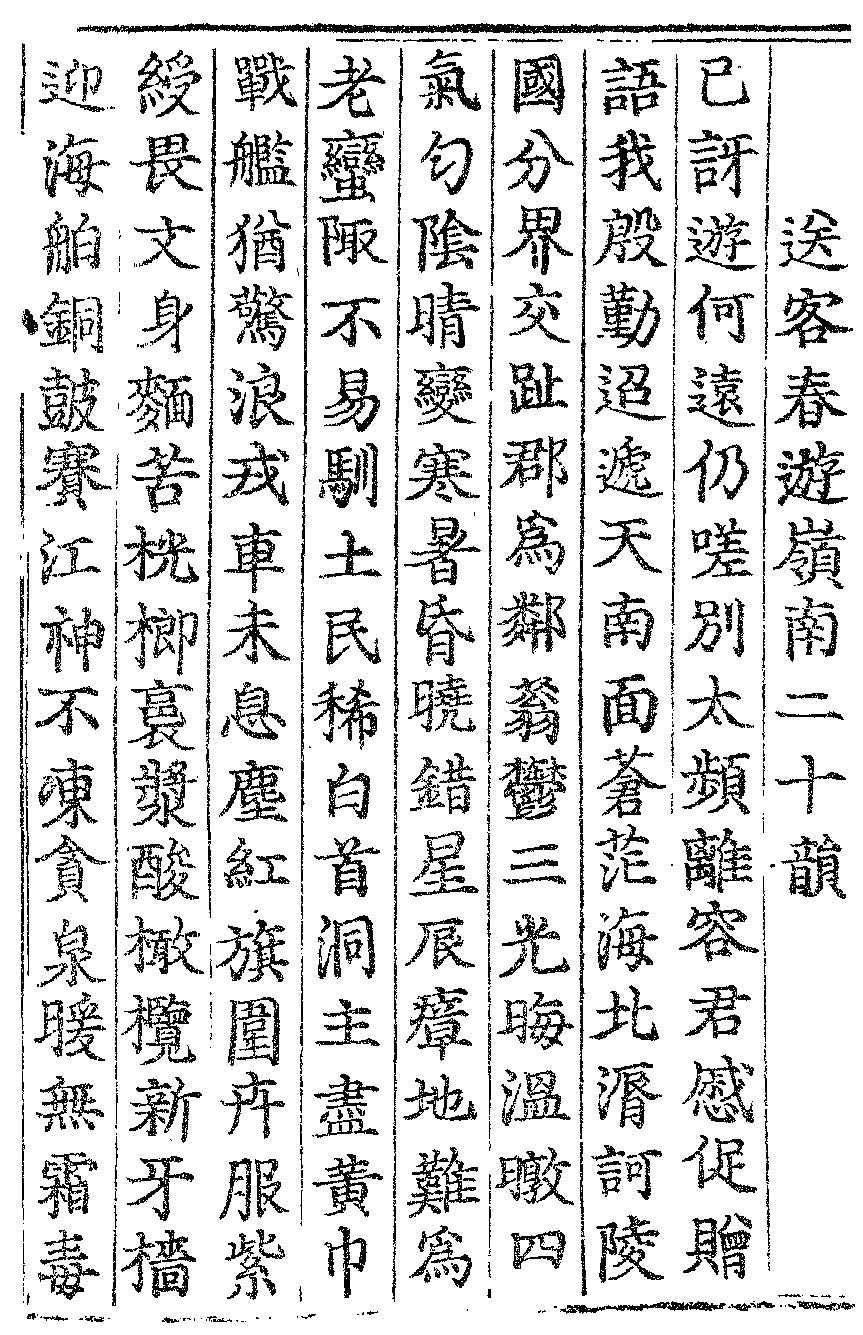 送客春遊嶺南二十韻
已訝遊何遠仍嗟別太頻離容君慼促贈
語我殷勤迢遞天南面蒼茫海北漘訶陵
國分界交趾郡爲鄰蓊鬱三光晦溫暾四
氣勻陰晴變寒暑昏曉錯星辰瘴地難爲
老蠻陬不易馴土民稀白首洞主盡黃巾
戰艦猶驚浪戎車未息塵紅旗圍卉服紫
綬畏文身麵苦桄榔裛漿酸橄欖新牙檣
迎海舶銅鼓賽江神不凍貪泉暖無霜毒